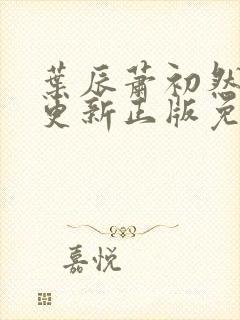 葉辰蕭初然
更新正版免
嘉悅